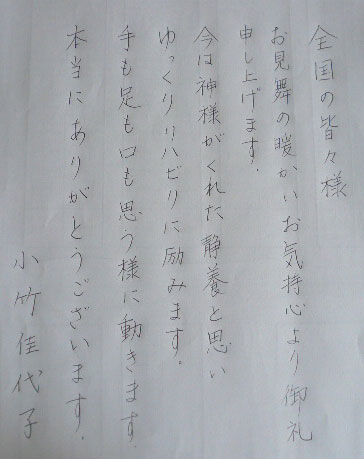 全国の皆々様
お見舞の暖かいお気持心より御礼
申し上げます．
今は神様がくれた静養と思い
ゆっくりリハビリに励みます。
手も足も口も思う様に動きます．
本当にありがとうございます．
小竹佳代子